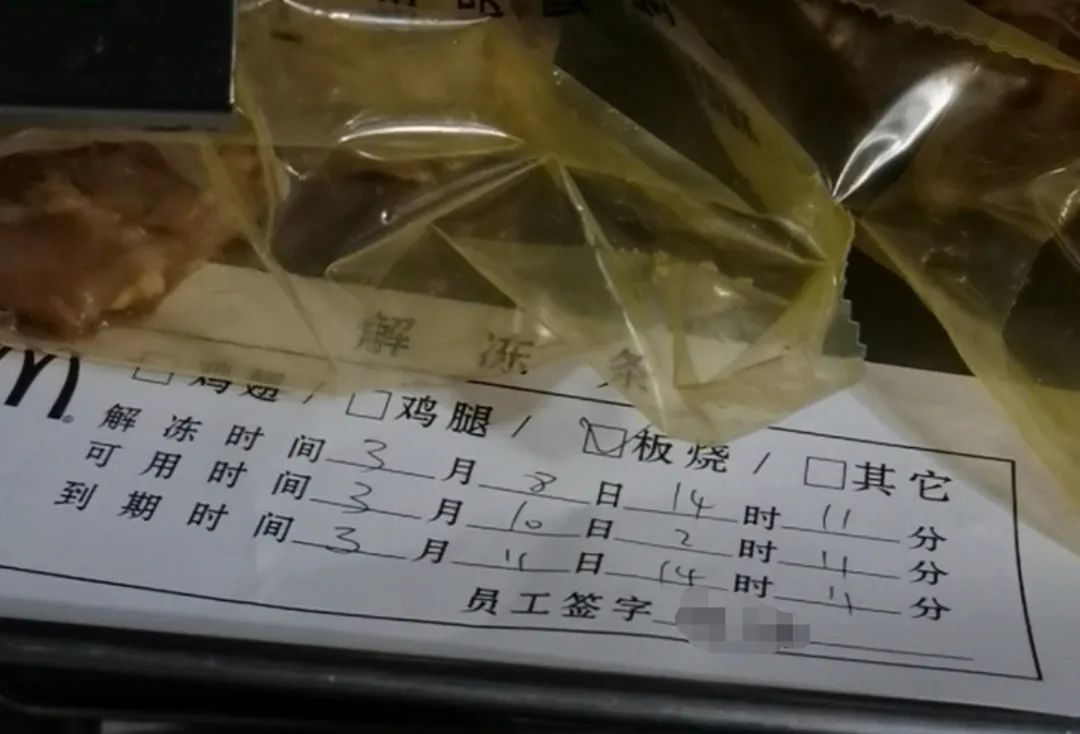 解冻条
□鸡翅/□鸡腿/☑板烧/□其它
解冻时间3月8日14时11分
可用时间3月10日2时11分
到期时间3月11日14时11分
员工签字